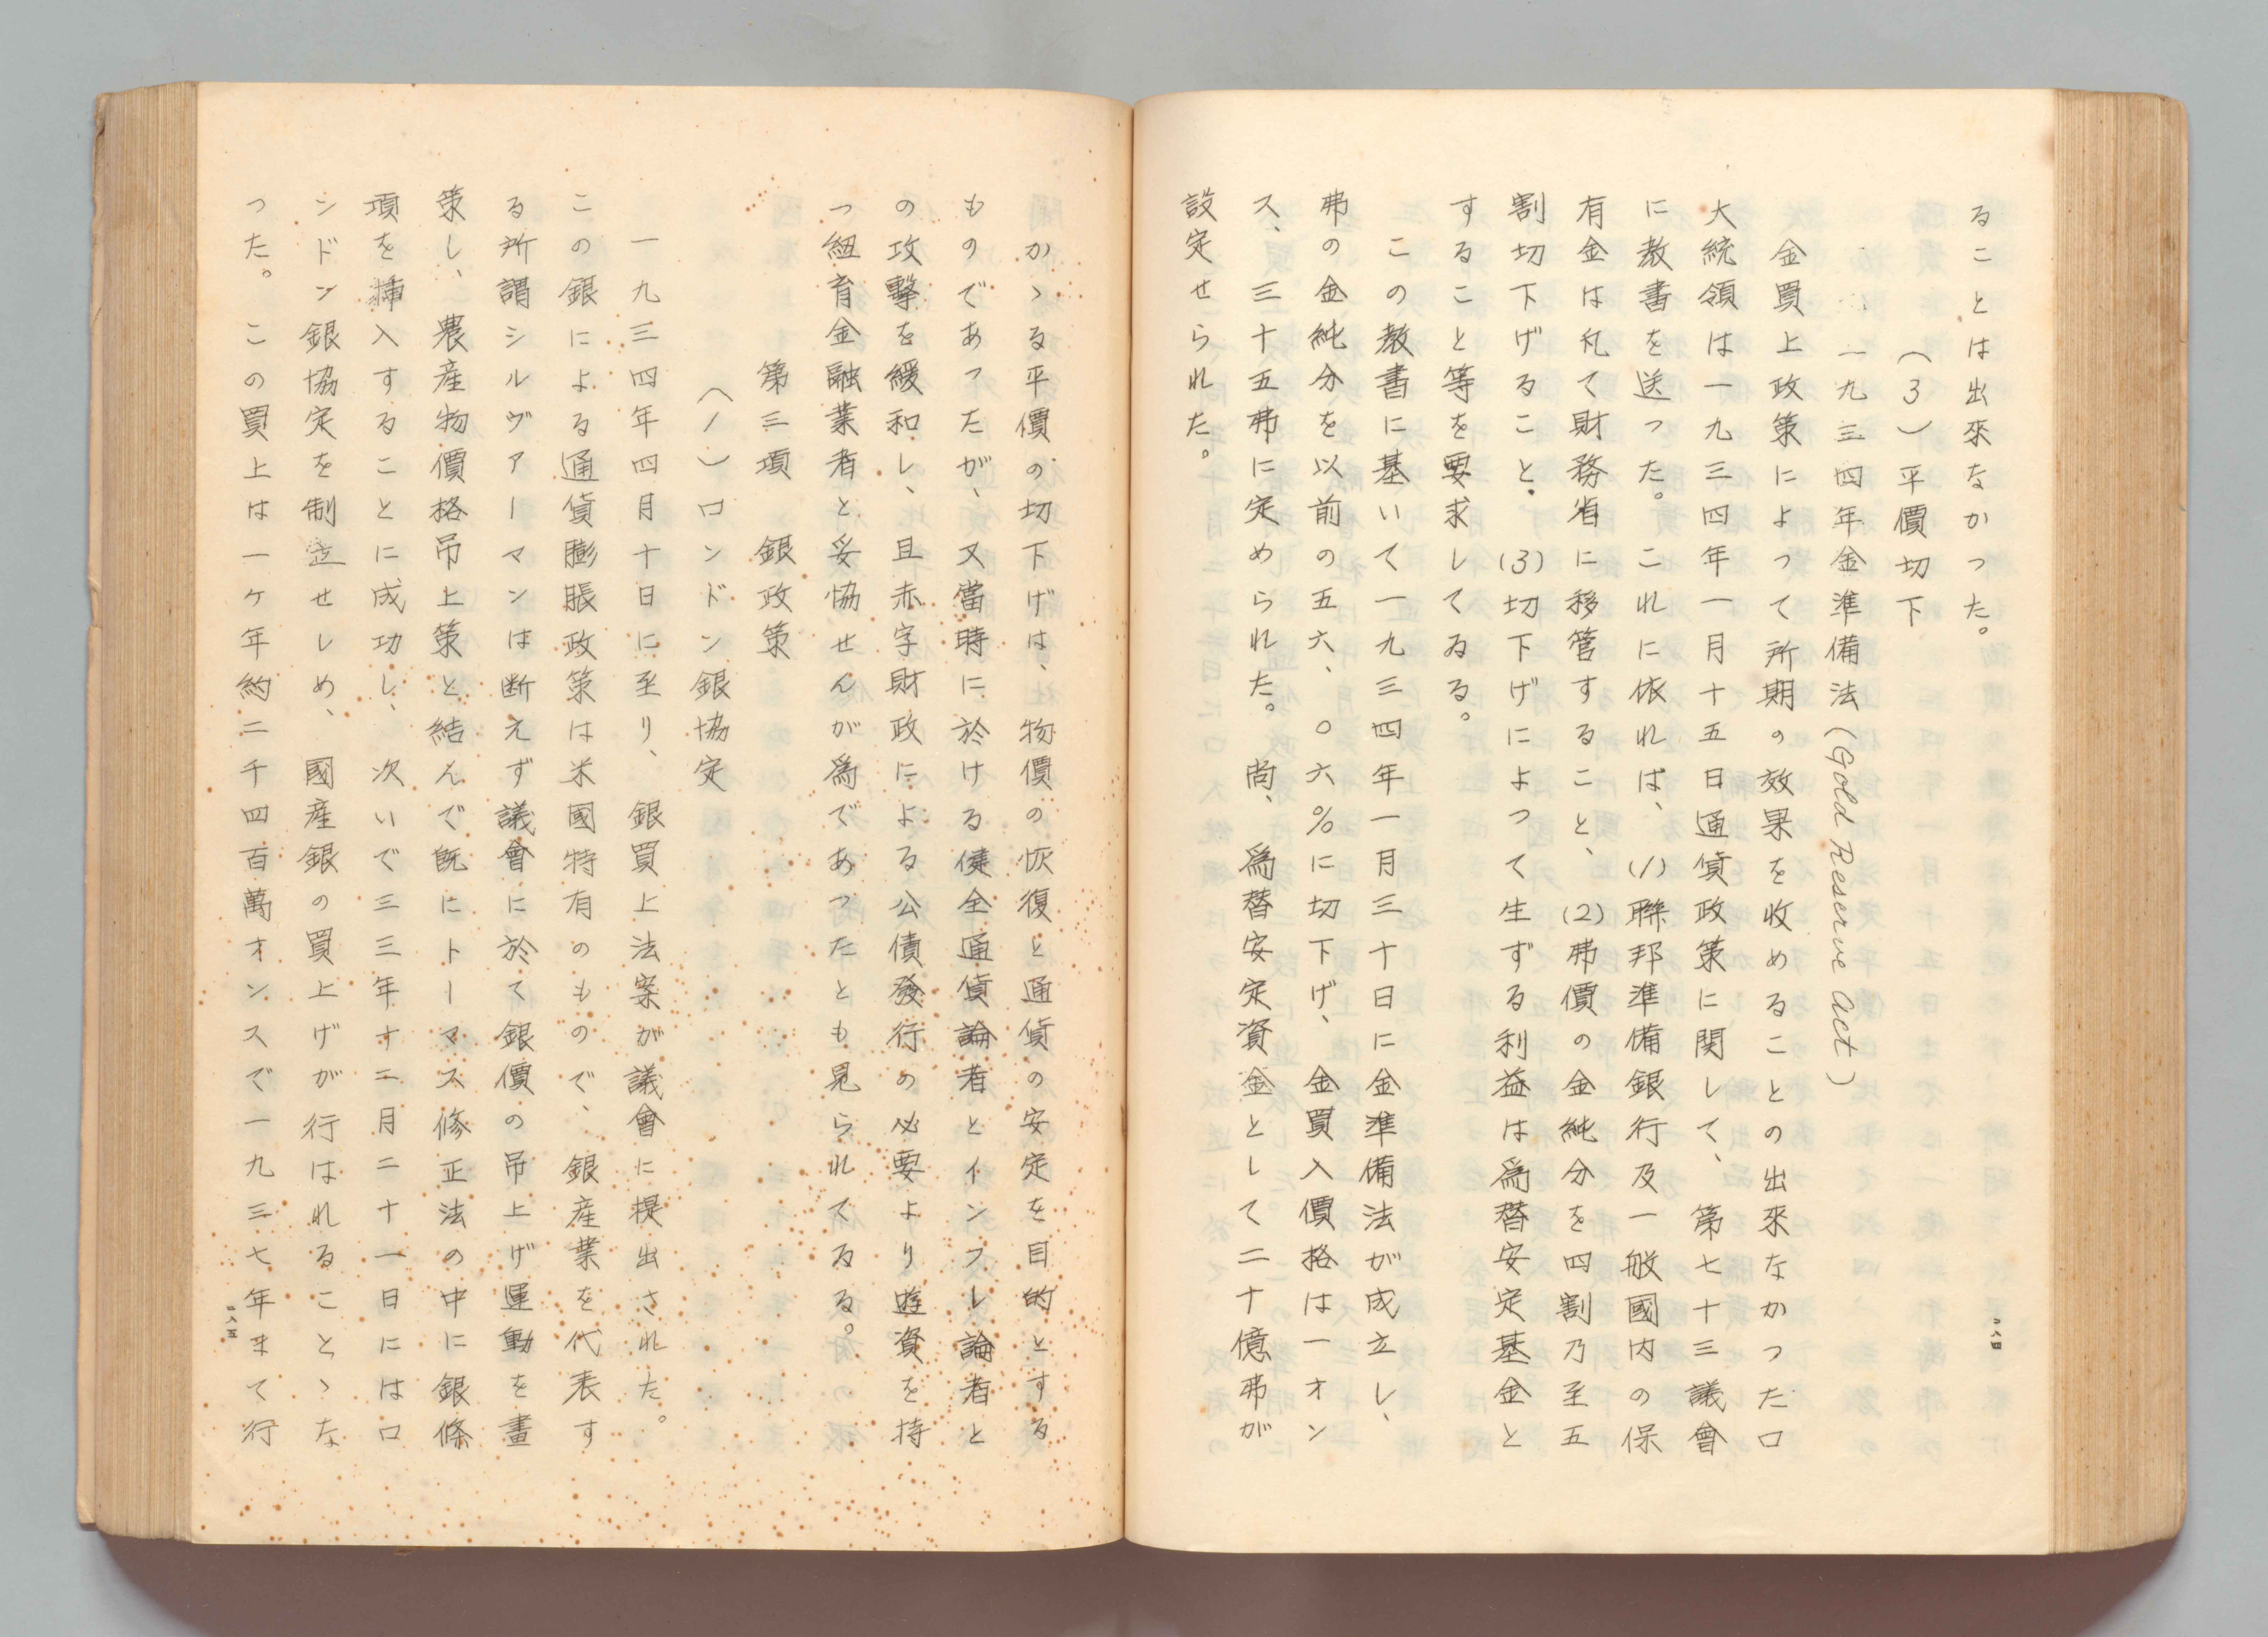 ることは出來なかつた。
(3)平價切下
一九三四年金準備法(Gold Reserve Act)
金買上政策によつて所期の效果を收めることの出來なかつたロ
大統領は一九三四年一月十五日通貨政策に関して、第七十三議會
に教書を送つた。これに依れば、(1)聯邦準備銀行及一般國内の保
有金は凡て財務省に移管すること、(2)弗價の金純分を四割乃至五
割切下げること、(3)切下げによつて生ずる利益は爲替安定基金と
すること等を要求してゐる。
この教書に基いて一九三四年一月三十日に金準備法が成立し、
弗の金純分を以前の五六、〇六%に切下げ、金買入價格は一オン
ス、三十五弗に定められた。尚、爲替安定資金として二十億弗が
設定せられた。
二八四
かゝる平價の切下げは、物價の恢復と通貨の安定を目的とする
ものであつたが、又當時に於ける健全通貨論者とインフレ論者と
の攻擊を緩和し、且赤字財政による公債發行の必要より遊資を持
つ紐育金融業者と妥協せんが爲であつたとも見られてゐる。
第三項 銀政策
(1)ロンドン銀協定
一九三四年四月十日に至り、銀買上法案が議會に提出された。
この銀による通貨膨脹政策は米國特有のもので、銀産業を代表す
る所謂シルヴアーマンは断えず議會に於て銀價の吊上げ運動を畫
策し、農産物價格吊上策と結んで既にトーマス修正法の中に銀條
項を揷入することに成功し、次いで三三年十二月二十一日にはロ
ンドン銀協定を制定せしめ、國産銀の買上げが行はれることゝな
つた。この買上は一ヶ年約二千四百萬オンスで一九三七年まで行
二八五